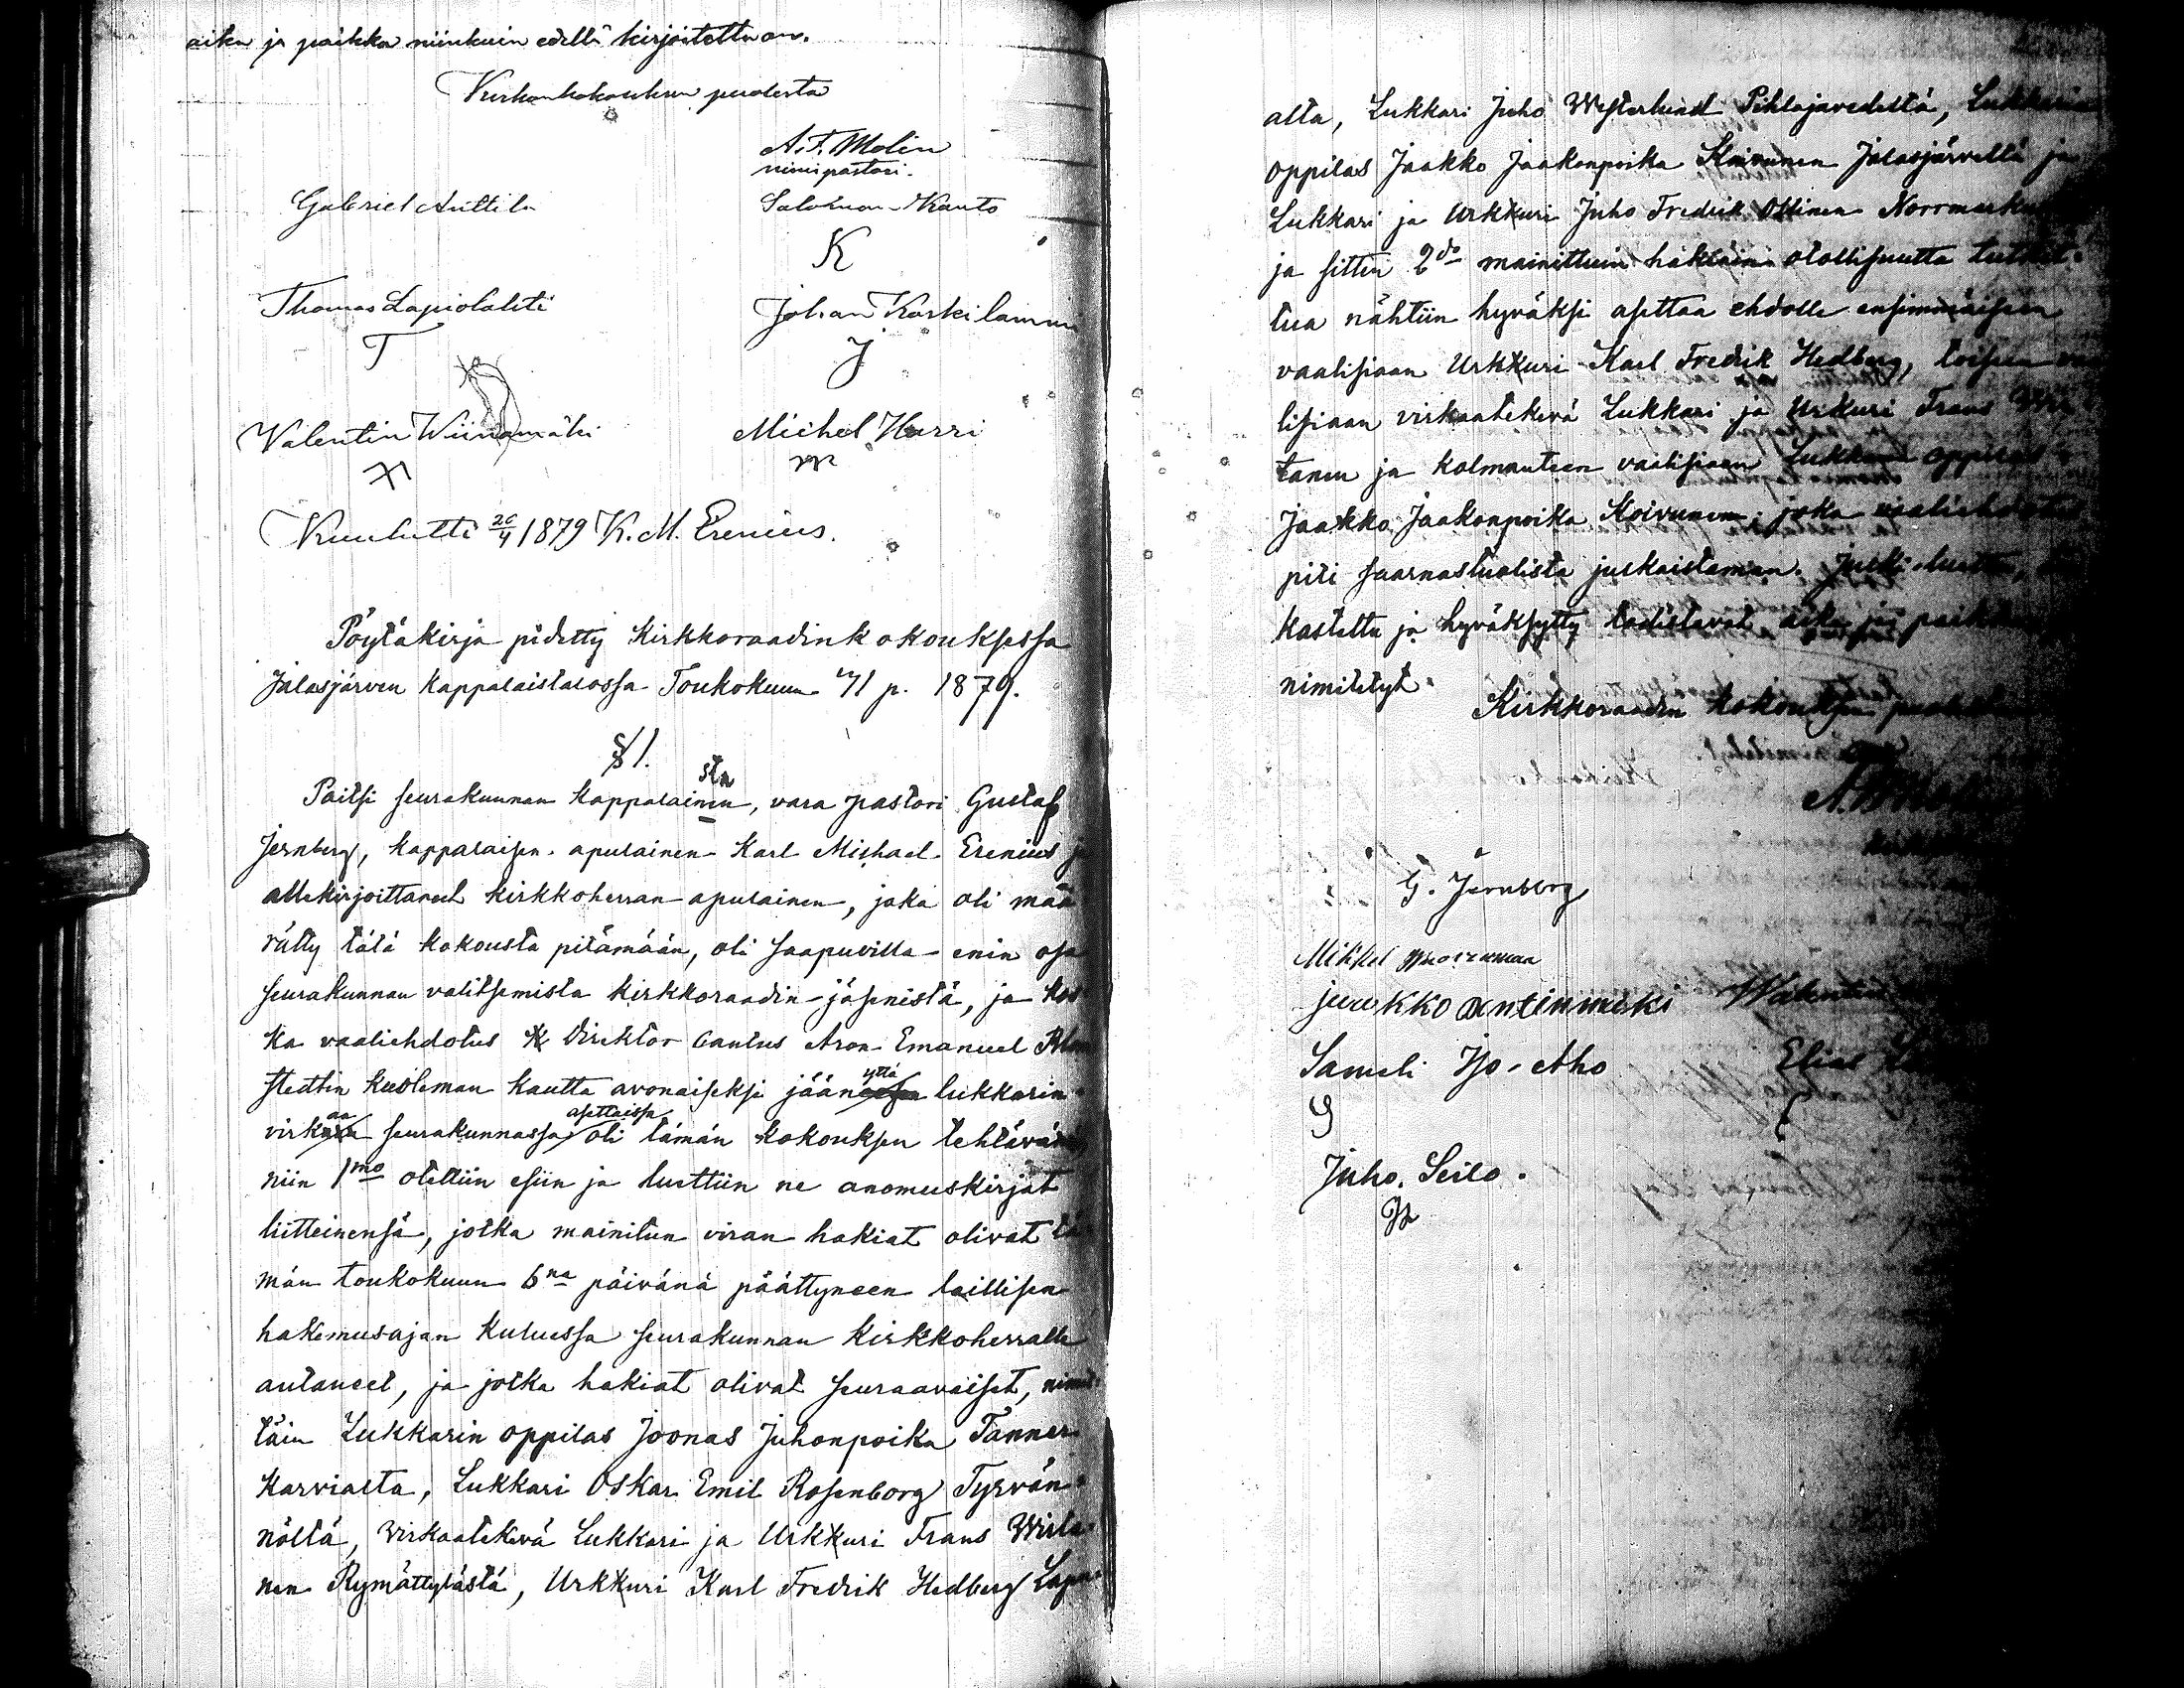 aika ja paikka niinkuin edellä kirjoitettu on.
Kirkonkokouksen puolesta
A. F. Molin
nimipastori.
Gabriel Anttila
Salomon Kauto
K
Thomas Lapiolahti
Johan Koskilammi
T
J
Valentin Wiinamäki
Michel Harri
Kuulutti 20/4 1879 K. M. Erenius.
Pöytäkirja pidetty Kirkkoraadinkokouksessa
Jalasjärven Kappalaistalossa Toukokuun 71 p. 1879.
§ 1.
sta
Paitsi seurakunnan Kappalainen, vara pastori Gustaf
Jernberg, Kappalaisen apulainen Karl Michael Erenius ja
allekirjoittaneet kirkkoherran apulainen, joka oli mää
rätty tätä kokousta pitämään, oli saapuvilla enin osa
seurakunnan valitsemista kirkkoraadin jäsenistä, ja kos
ka vaaliehdotus Direktor Cantus Aron Emanuel
stedtin kuoleman kautta avonaiseksi jään yttä lukkarin
virkaa seurakunnassa asettaissa oli tämän kokouksen tehtävänä
niin 1mo otettiin esiin ja luettiin ne anomuskirjat
liitteinensä, jotka mainitun viran hakiat olivat tä
män toukokuun 6na päivänä päättyneen laillisen
hakemusajan kuluessa seurakunnan Kirkkoherralle
antaneet, ja jotka hakiat olivat seuraavaiset, nimit
täin Lukkarin oppilas Joonas Juhonpoika Tanner
Karvialta, Lukkari Oskar Emil Rosenborg Tyrvän
nöltä, Wirkaatekevä Lukkari ja Urkkuri Frans Wirta
nen Rymättylästä, Urkkuri Karl Fredrik Hedberg Lapu
alta, Lukkari Juho Westerlund Pihlajavedeltä, Lukkarin
oppilas Jaakko Jaakonpoika Koivunen Jalasjärvellä ja
Lukkari ja Urkkuri Juho Fredrik Ollinen Norrmarku
ja sitten 2do mainittuin hakiain otollisuutta tutkit
tua nähtiin hyväksi asettaa ehdolle ensimmäiseen
vaalisiaan Urkkuri Karl Fredrik Hedberg, toiseen vaa
lisiaan virkaatekevä Lukkari ja Urkuri Frans Wir
tanen ja kolmanteen vaalisiaan Lukkarin oppilas
Jaakko Jaakonpoika Koivunen, joka vaaliehdotus
piti saarnastuolista julkaistaman. Julki luettu,
kastettu ja hyväksytty todistavat aika ja paikka
nimitetyt.
Kirkkoraadin kokouksen puolesta
G. Jernberg
Mikkel
juukko antinmäki Walentin
Sameli Yjo-Aho Elias
S
Juho. Seilo.